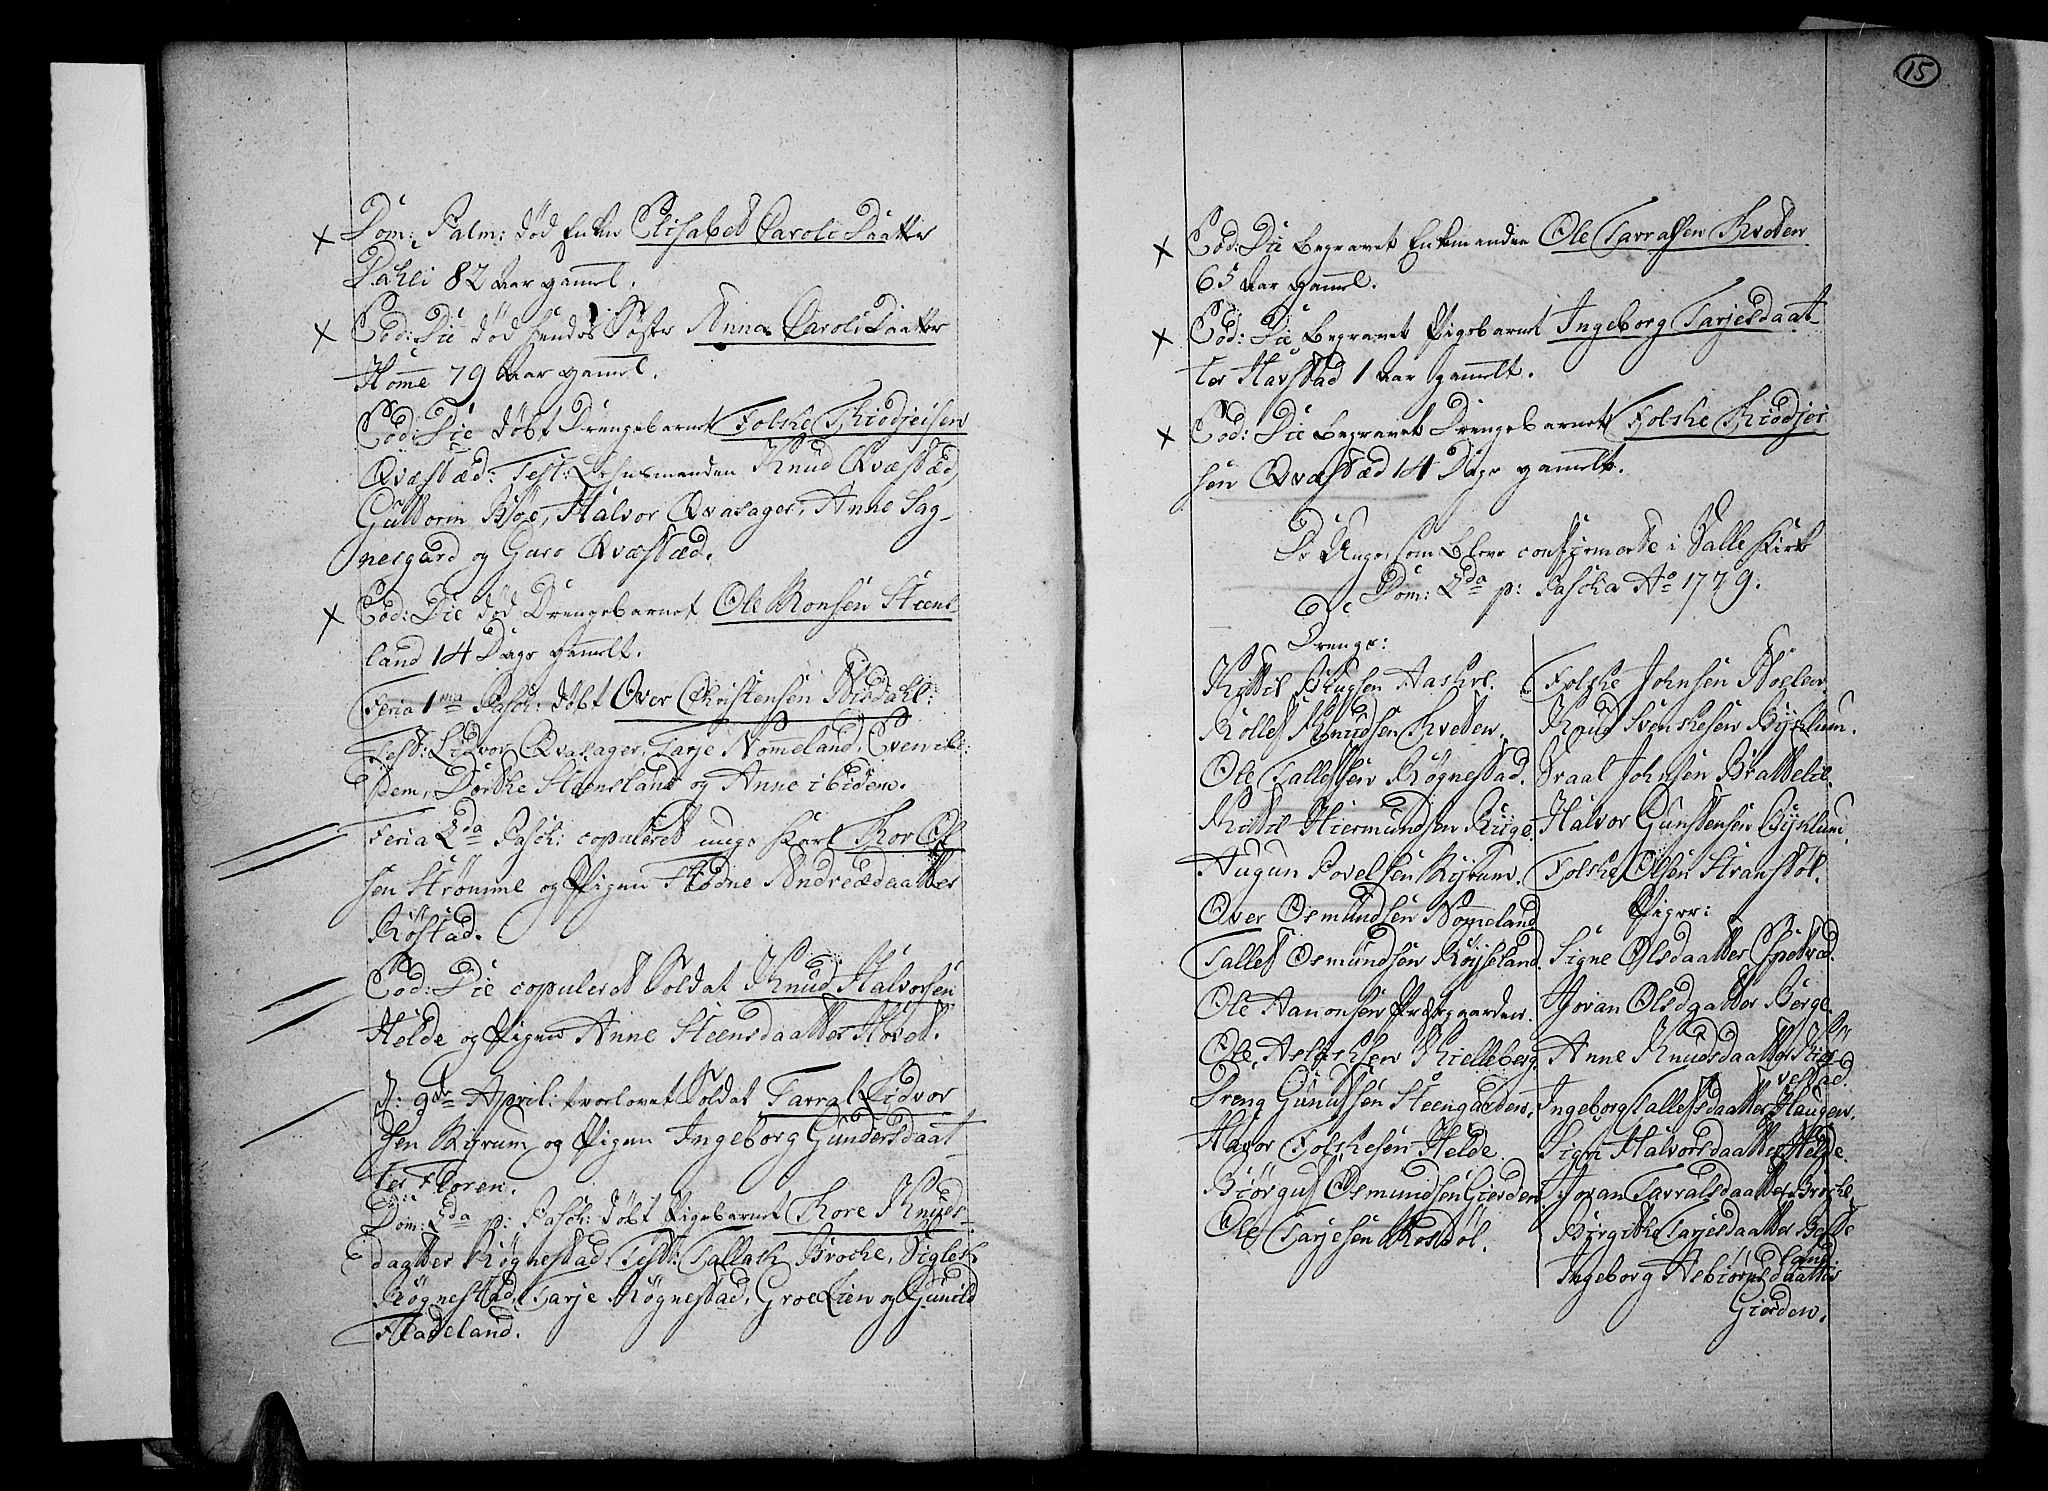 Dom: Palm: död Enken Elisabet Caroli Daatter
Dahli 82 Aar gamel.
Eod: Die död hendes Søster Anna Caroli Daatter
Homme 79 Aar gamel.
Eod: Die döbt Drengebarnet Folske Kiddjelsen
Qvæstæd: Test: Lehnsmanden Knud Qvæstæd,
Guttorm Böe, Halvor Qvasager, Anne Sag-
nesgard og Guro Qvæstæd.
Eod: Die död Drengebarnet Ole Ronsen Steens-
land 14 Dage gamelt.
Feria 1ma Pasch: döbt Over Christensen Nisdahl:
Test: Lidvor Qvasager, Tarje Nommeland, Even ibi-
dem, Dortke Steensland og Anne ibidem.
Feria 2da Pasch: copuleret unge Karl Thor Ol-
sen Strömme og Pigen Hodne Andreædaatter
Röstad.
Eod: Die copuleret Soldat Knud Halvorsen
Helde og Pigen Anne Steensdaatter Hovet.
d: 9de April: trolovet Soldat Tarral Lidvor
sen Ryrum og Pigen Ingeborg Gundersdaat-
ter Floren.
Dom: 2da p: Pasch: döbt Pigebarnet Thore Knuds-
daatter Rögnestad Test: Tallak Broche, Sigleck
Rögnestad, Tarje Rögnestad, Groe Lien og Gunild
Hadeland.
15
Eod: Die begravet Enkemanden Ole Tarralsen Kvesten
65 Aar gammel.
Eod: Die begravet Pigebarnet Ingeborg Tarjesdaat-
ter Harstad 1 Aar gamelt.
Eod: Die begravet Drengebarnet Folske Kiddjel-
sen Qvæstæd 14 Dage gamelt.
De Unge, som bleve confirmerede i Valle Kirke
Dom: 2da p: Pascha Ao 1779.
Drenge:
Kittil Btugsen Aakre.
Rollef Knudsen Kvesten.
Ole Tallefsen Rögnestad.
Kittil Hiermundsen Rige
Augun Povelsen Ryrum.
Over Osmundsen Nommeland
Tallef Osmundsen Röyseland
Ole Aanonsen Prestegaarden.
Ole Aslachsen Kielleberg.
Dreng Gunufsen Steengarden.
Havor Folskesen Helde
Biörguf Osmundsen Gierden
Ole Tarjesen Rosdöl.
Folske Johnsen Noelen.
Knud Svenskesen Byklum.
Draat Johnsen Brattelie
Halvor Gunstensen Byklum
Folske Olsen Stranstöl.
Piger:
Signe Olsdaatter Espetved.
Joran Olsdaatter Berge.
Anne Knudsdaatter Kige-
vestad.
Ingeborg Tallefsdaatter Haugen.
Sigri Halvorsdaatter Helde.
Joran Tarralsdaatter Broche
Byrgithe Tarjesdaatter Besse
land.
Ingeborg Asbiörnsdaatter
Gierden.